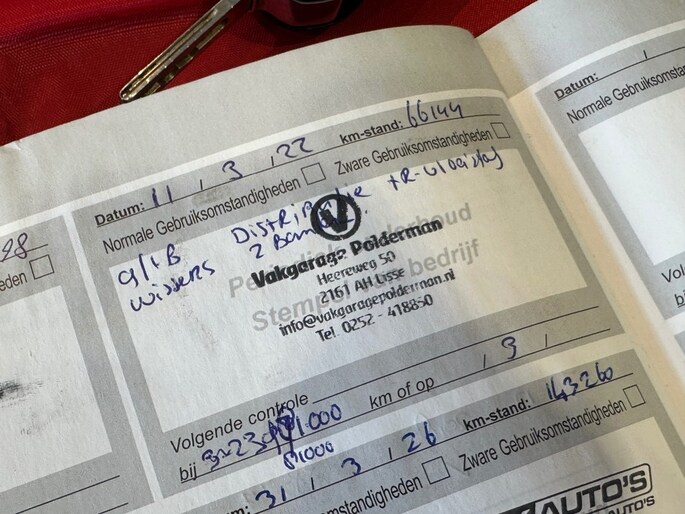 Datum: 11 / 3 / 22 km-stand: 66144
Normale Gebruiksomstandigheden Zware Gebruiksomstandigheden
Distributie + R-vloeistof
2 Banden
Wissers
Periodiek onderhoud
Stempel van bedrijf
V
Vakgarage Polderman
Heereweg 50
2161 AH Lisse
info@vakgaragepolderman.nl
Tel. 0252 - 418850
Volgende controle
bij 3-23 of 91.000 km of op , 3 ,
81000
31 / 3 / 26 km-stand: 143260
Zware Gebruiksomstandigheden
AUTO'S
AUTO'S
Datum: /
Normale Gebruiksomst
Volg
bij
28
eden